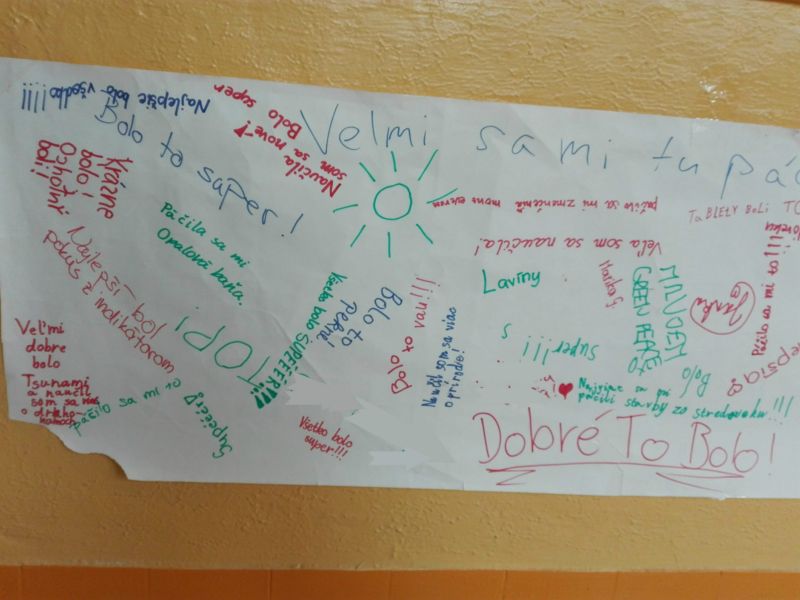 Najlepšie bolo všetko !!!!!
Bolo super
Naučila
som sa nové!
Bolo to super!
Velmi sa mi tu pá
Krásne
bolo i
Ochotní
boli!
páčilo sa mi zmenšená mont everest
TABLETY BOLI
Páčila sa mi
Omalová banka.
Veľa som sa naučila!
Najlepší bol
pokus z indikátorom
Všetko bolo SUPÉÉÉR!!!
Bolo to
pekné
Bolo to vau!!!
Naučil som sa viac
o prírode!
Laviny
MILUJEM
GREEN
Páčilo sa mi to!!!
TOP!
Super!!!
s
Bolo
Veľmi
dobre
bolo
Tsunami
a naučil
som sa viac
o
páčilo sa mi to
Supééér!
Všetko bolo
super!!!
Najviac sa mi
páčili stavby zo stredoveku...!!!
Dobré To Bolo!